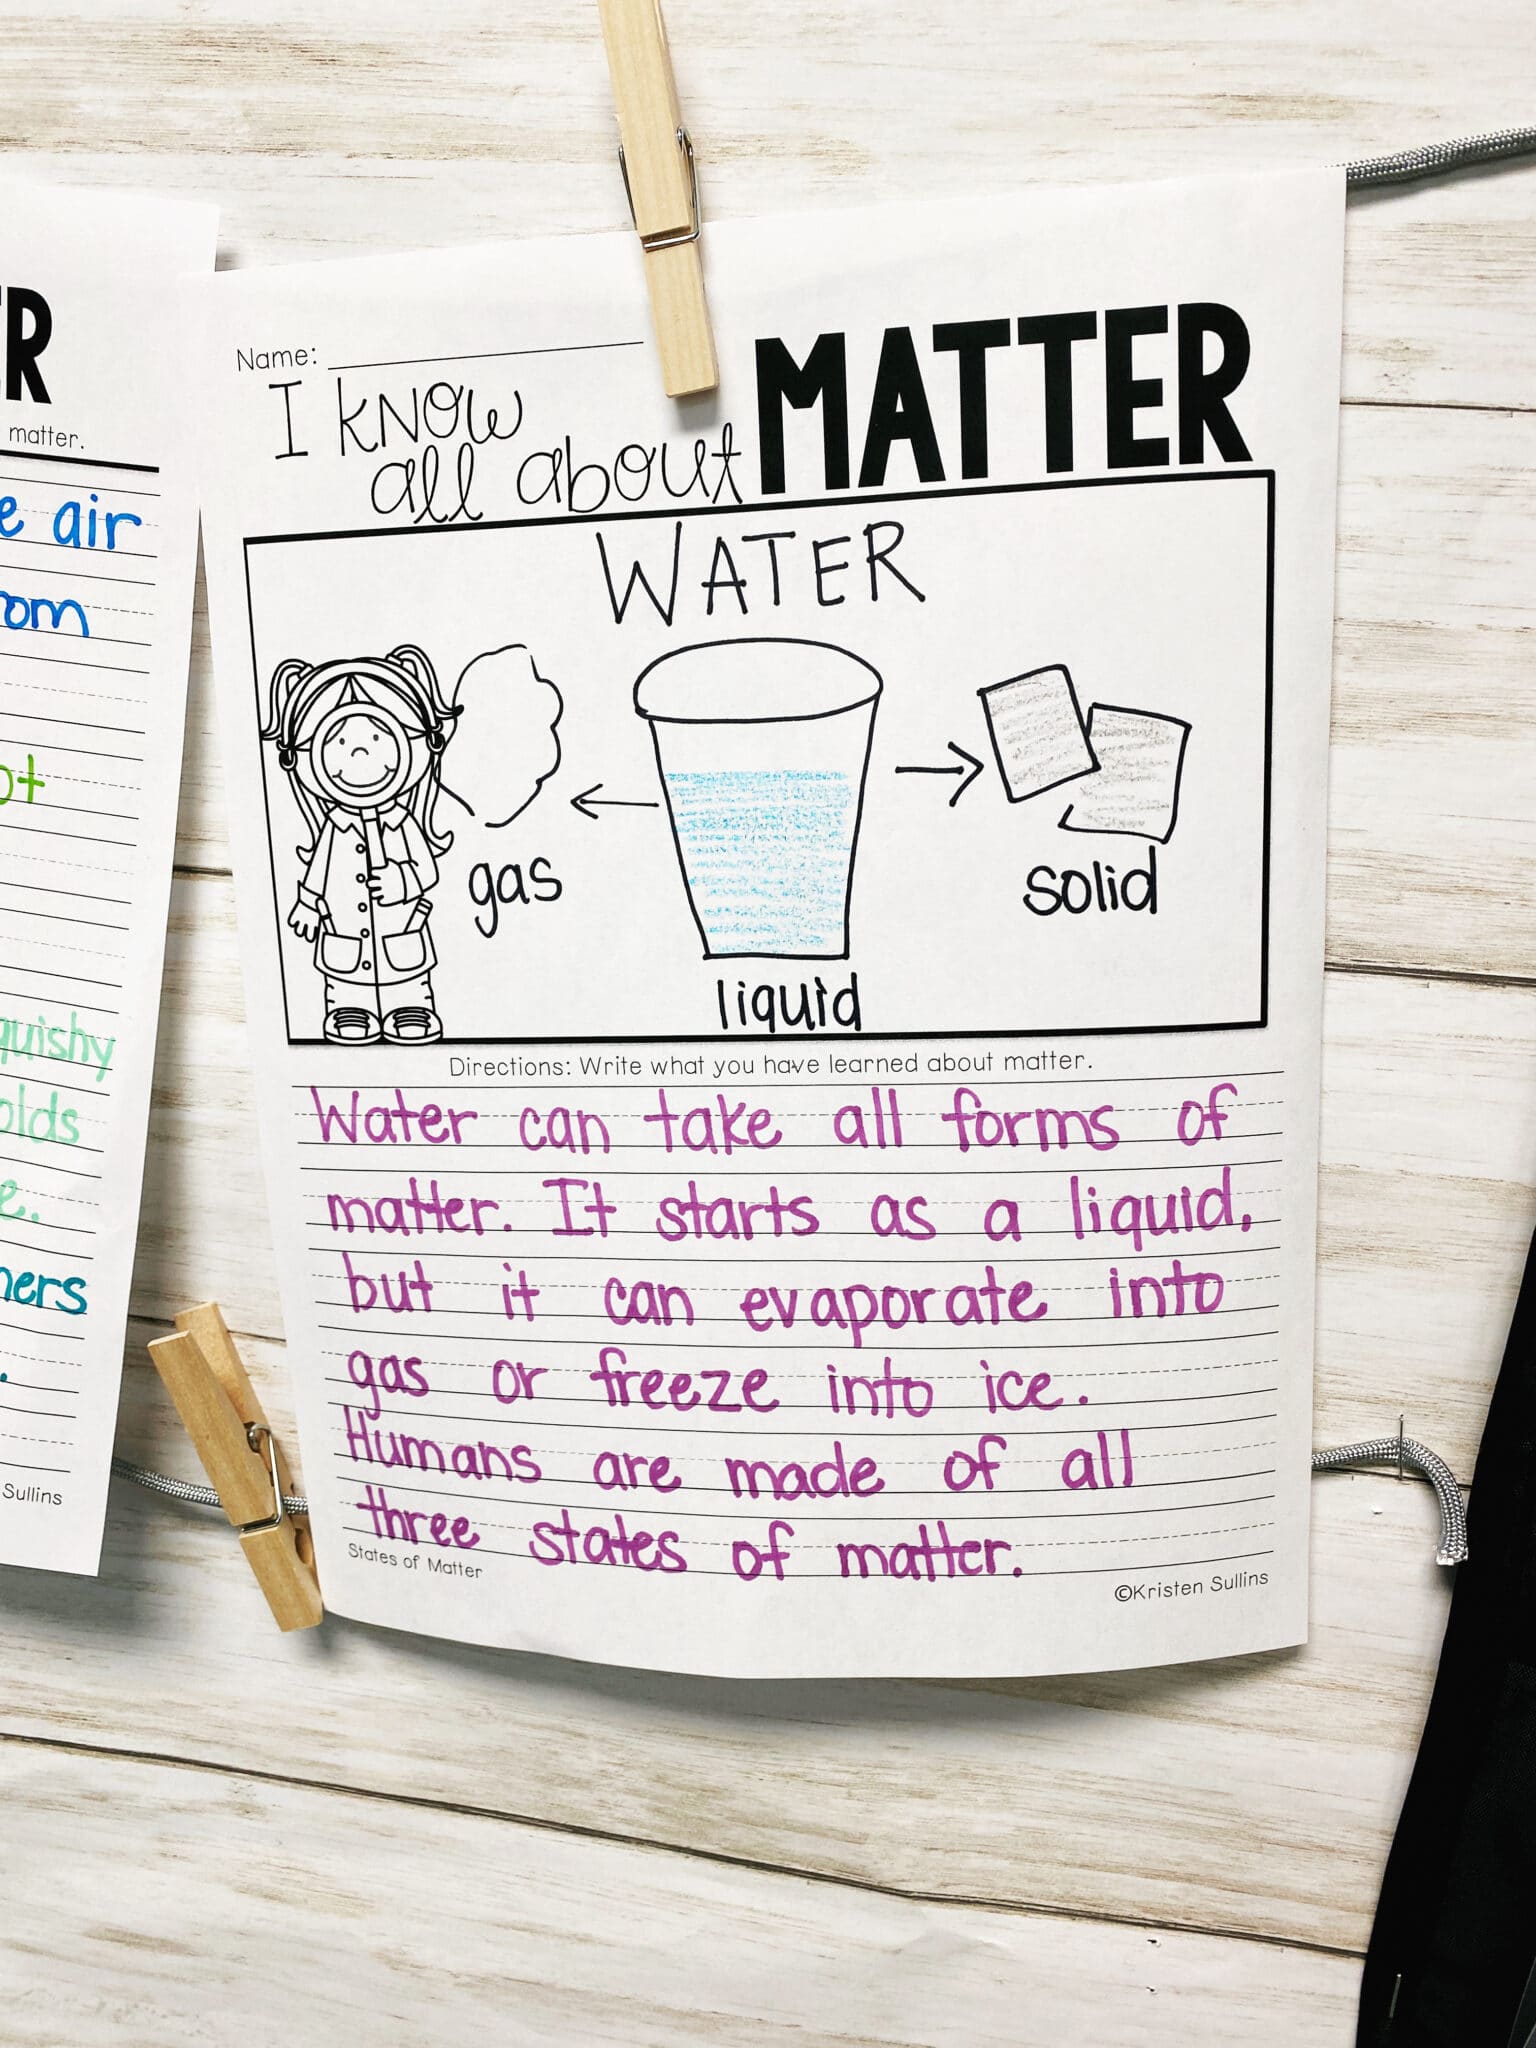 ER
matter.
e air
om
ot
quishy
olds
e.
ners
.
Sullins
Name:
I know
all about MATTER
WATER
gas
liquid
solid
Directions: Write what you have learned about matter.
Water can take all forms of
matter. It starts as a liquid,
but it can evaporate into
gas or freeze into ice.
Humans are made of all
three states of matter.
States of Matter
©Kristen Sullins